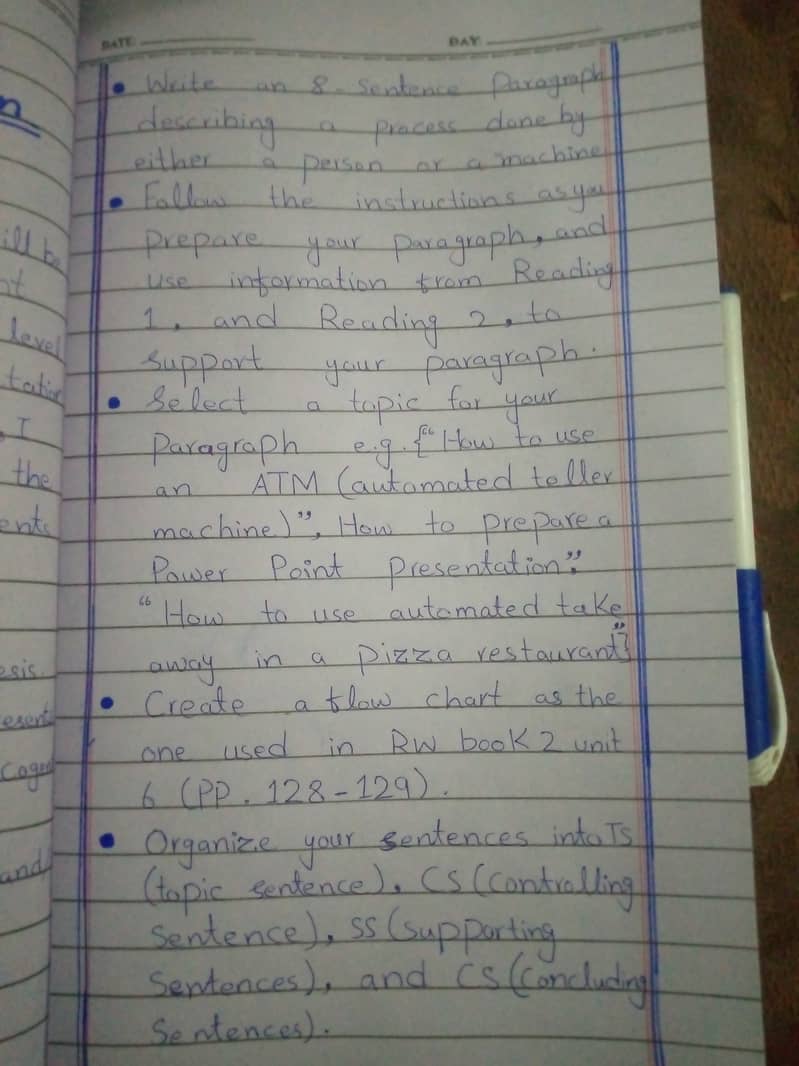 DATE: DAY:
• Write an 8-sentence Paragraph
describing a process done by
either a person or a machine
• Follow the instructions as you
prepare your paragraph, and
use information from Reading
1, and Reading 2, to
support your paragraph.
• Select a topic for your
Paragraph e.g. {“How to use
an ATM (automated teller
machine)”, How to prepare a
Power Point Presentation”.
“How to use automated take
away in a pizza restaurant”}
• Create a flow chart as the
one used in RW book 2 unit
6 (PP. 128-129).
• Organize your sentences into TS
(topic sentence), CS (controlling
Sentence), SS (supporting
Sentences), and CS (concluding
Sentences).
ill be
level
I
the
ents
esis.
and